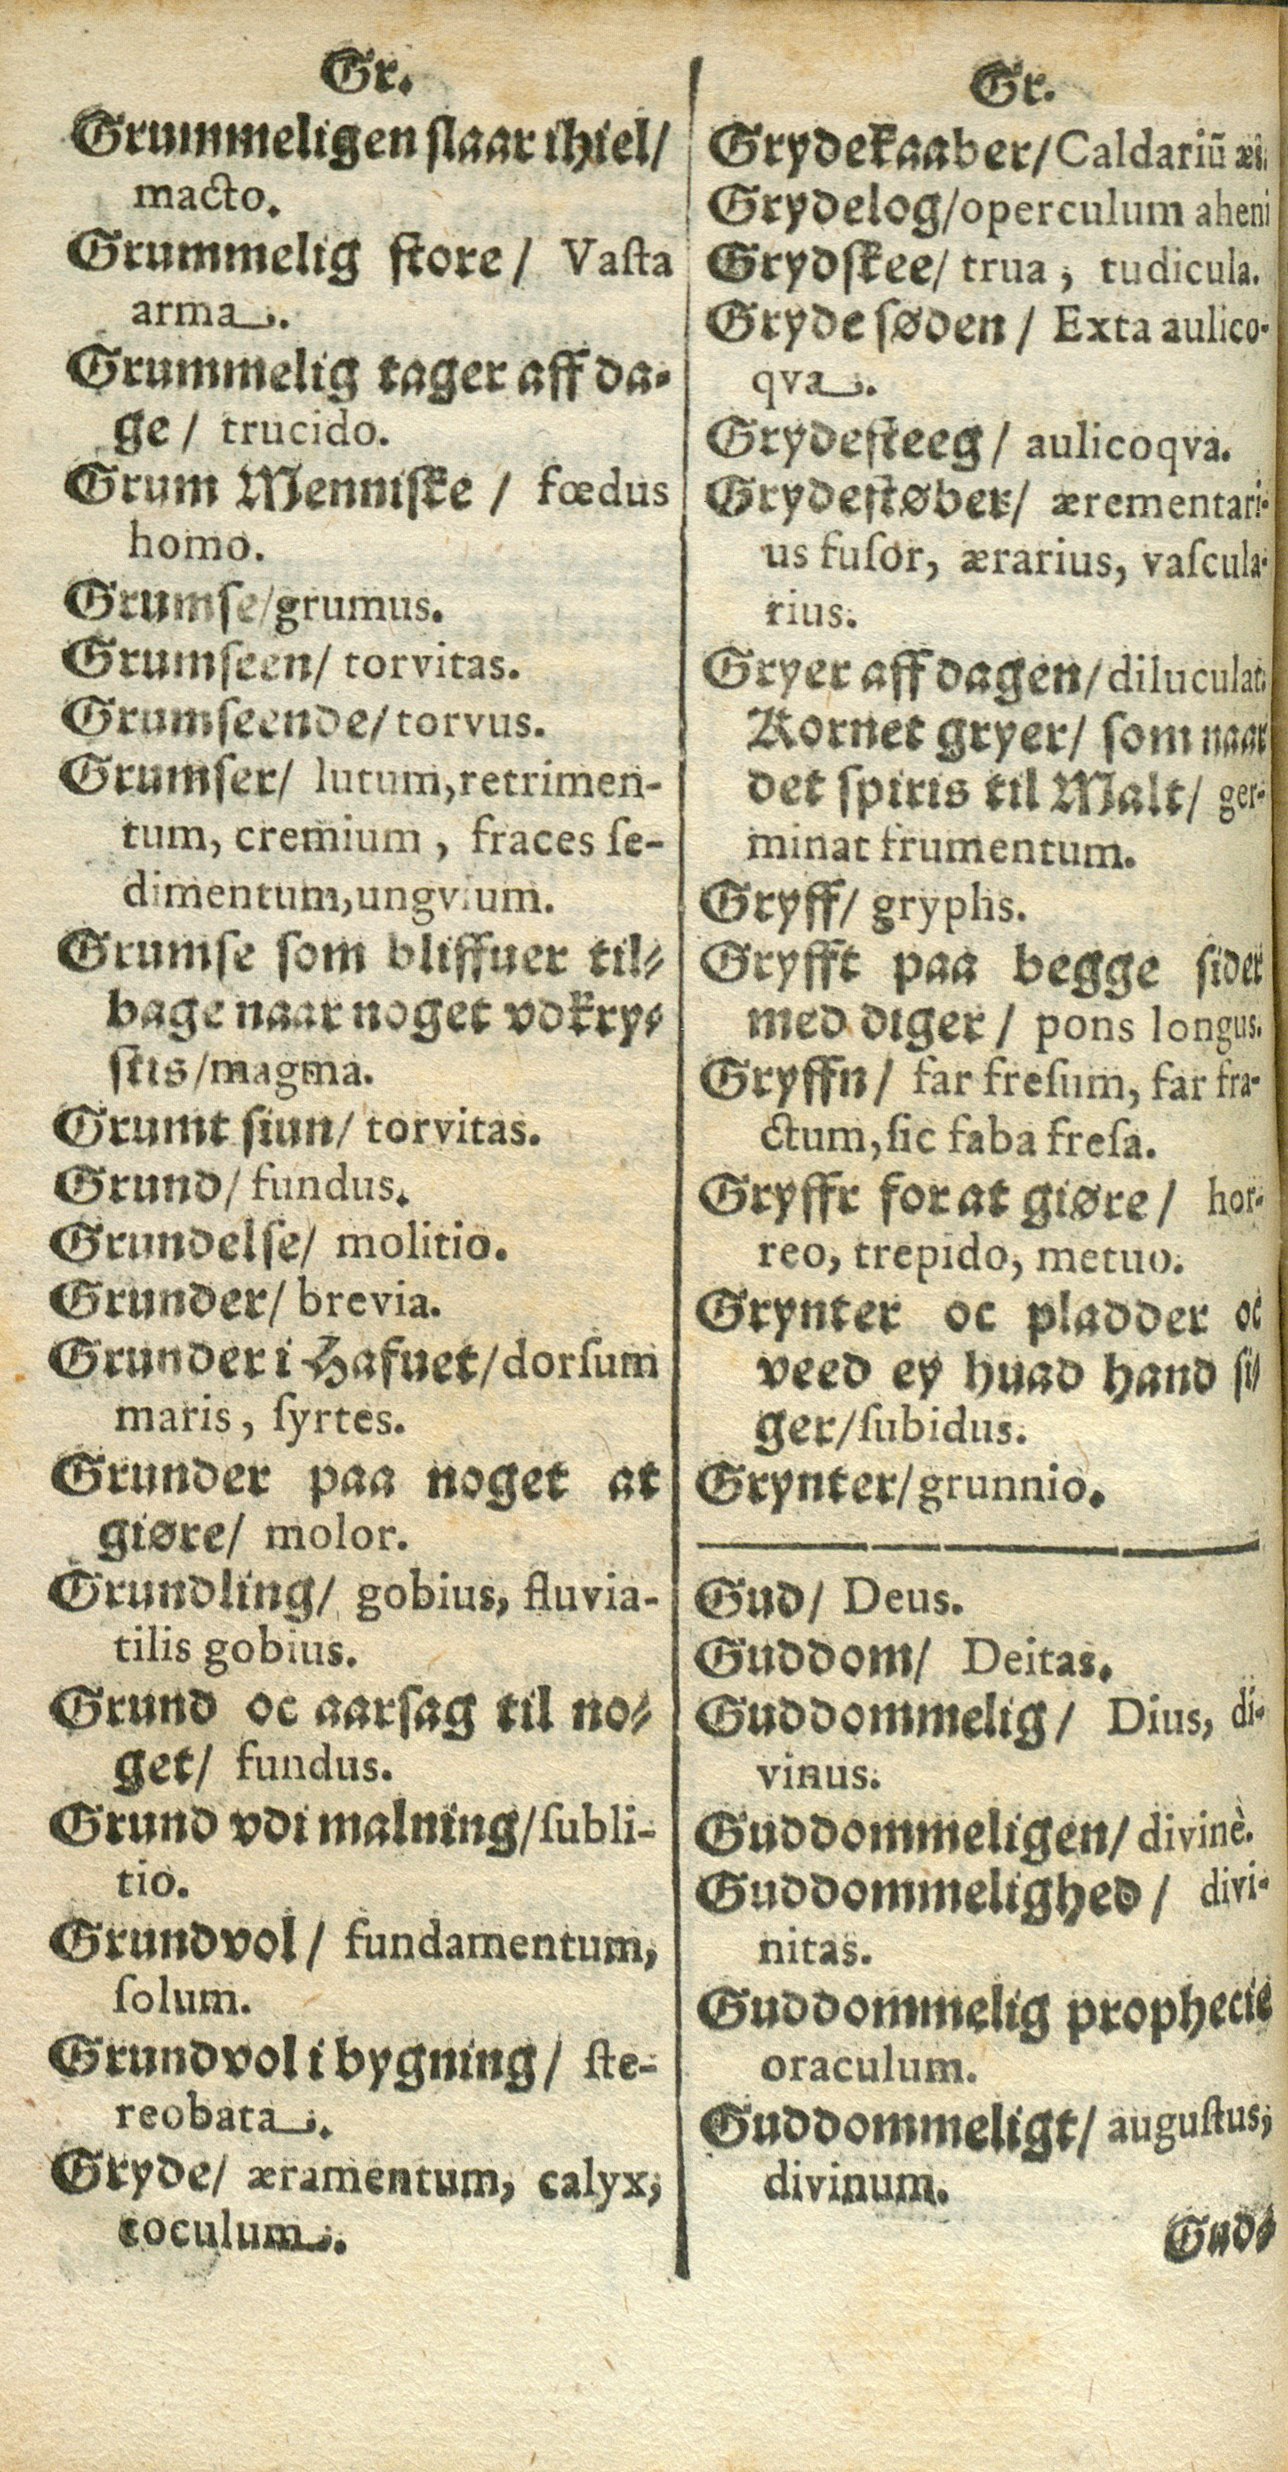 Gr.
Grummeligen slaar ihiel/
macto.
Grummelig store/ Vaſta
arma.
Grummelig tager aff da-
ge/ trucido.
Grum Menniſke/ fœdus
homo.
Grumſe/grumus.
Grumſeen/ torvitas.
Grumſeende/ torvus.
Grumſer/ lutum, retrimen-
tum, cremium, fraces ſe-
dimentum, ungvium.
Grumſe ſom bliffuer til-
bage naar noget vdkry-
ſtis/magma.
Grumt ſiun/ torvitas.
Grund/ fundus.
Grundelſe/ molitio.
Grunder/ brevia.
Grunder i Hafuet/dorſum
maris, ſyrtes.
Grunder paa noget at
giøre/ molor.
Grundling/ gobius, fluvia-
tilis gobius.
Grund oc aarſag til no-
get/ fundus.
Grund vdi malning/ſubli-
tio.
Grundvol/ fundamentum,
ſolum.
Grundvol i bygning/ ſte-
reobata.
Gryde/ æramentum, calyx,
coculum.
Gr.
Grydekaaber/Caldariũ æs.
Grydelog/operculum aheni
Grydſkee/ trua, tudicula.
Gryde ſøden/ Exta aulico-
qva.
Grydeſteeg/ aulicoqva.
Grydeſtøber/ ærementari-
us fuſor, ærarius, vaſcula-
rius.
Gryer aff dagen/diluculat.
Kornet gryer/ ſom naar
det ſpiris til Malt/ ger-
minat frumentum.
Gryff/ gryphs.
Gryfft paa begge ſider
med diger/ pons longus.
Gryffn/ far freſum, far fra-
ctum, ſic faba freſa.
Gryffr for at giøre/ hor-
reo, trepido, metuo.
Grynter oc pladder oc
veed ey huad hand ſi-
ger/ſubidus.
Grynter/grunnio.
Gud/ Deus.
Guddom/ Deitas.
Guddommelig/ Dius, di-
vinus.
Guddommeligen/ divinè.
Guddommelighed/ divi-
nitas.
Guddommelig prophecie
oraculum.
Guddommeligt/ auguſtus,
divinum.
Gud-